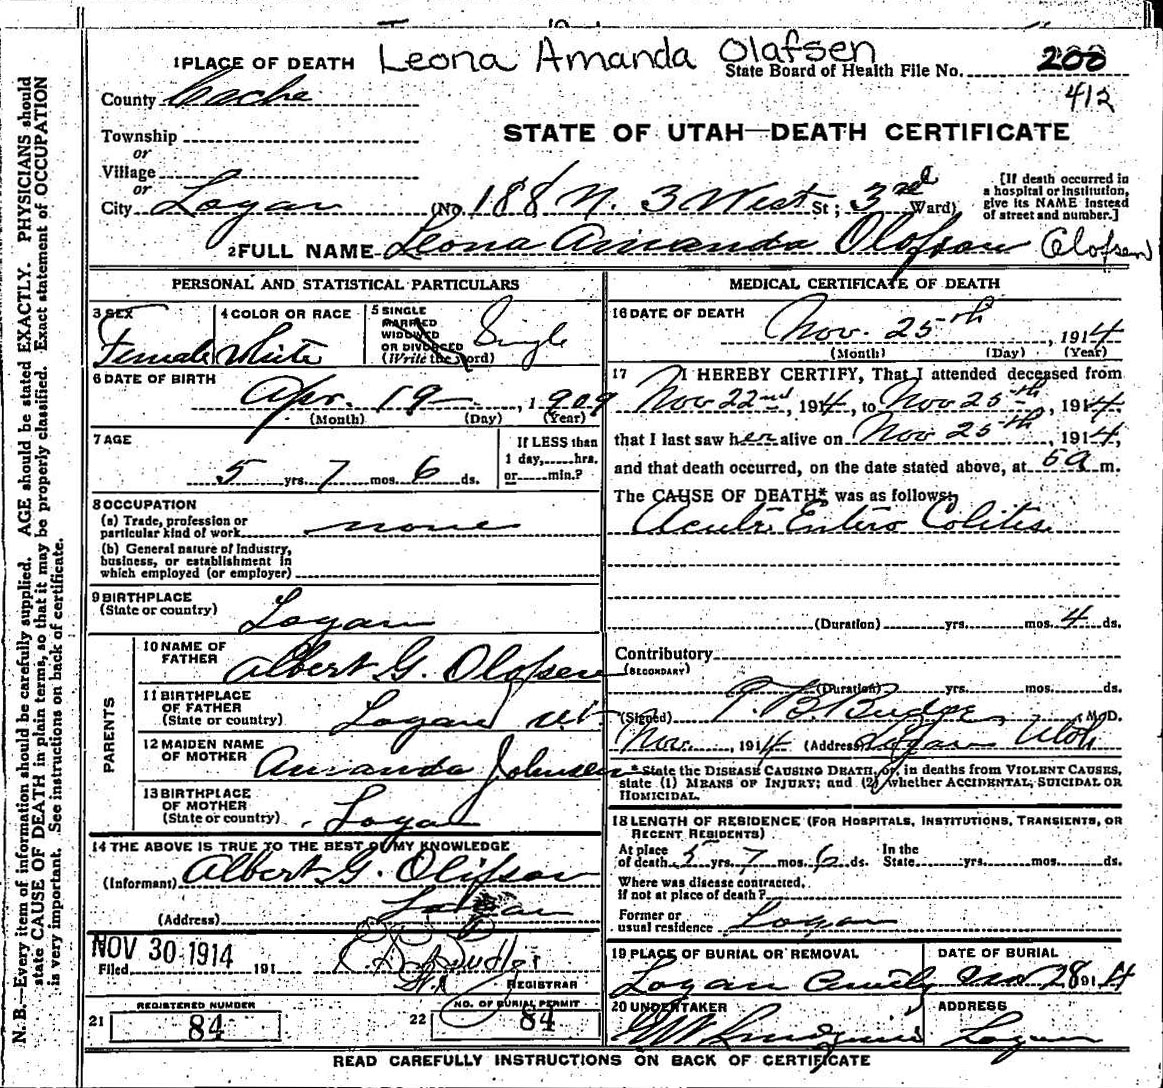 Leona Amanda Olafsen
1 PLACE OF DEATH
State Board of Health File No. 200
412
County Cache
Township
or
Village
or
City Logan (No. 188 N. 3 West St; 3rd Ward)
[If death occurred in
a hospital or institution,
give its NAME instead
of street and number.]
STATE OF UTAH—DEATH CERTIFICATE
2 FULL NAME Leona Amanda Olofson (Olofsen)
PERSONAL AND STATISTICAL PARTICULARS
3 SEX
Female
4 COLOR OR RACE
White
5 SINGLE
MARRIED
WIDOWED
OR DIVORCED
(Write the word)
Single
6 DATE OF BIRTH
Apr. 19, 1909
(Month) (Day) (Year)
7 AGE
5 yrs. 7 mos. 6 ds.
If LESS than
1 day,......hrs.
or......min.?
8 OCCUPATION
(a) Trade, profession or
particular kind of work none
(b) General nature of industry,
business, or establishment in
which employed (or employer)
9 BIRTHPLACE
(State or country) Logan
PARENTS
10 NAME OF
FATHER Albert G. Olofsen
11 BIRTHPLACE
OF FATHER
(State or country) Logan Ut
12 MAIDEN NAME
OF MOTHER Amanda Johnsen
13 BIRTHPLACE
OF MOTHER
(State or country) Logan
14 THE ABOVE IS TRUE TO THE BEST OF MY KNOWLEDGE
(Informant) Albert G. Olofson
(Address) Logan
NOV 30 1914
Filed 191
REGISTRAR
REGISTERED NUMBER
21 84
NO. OF BURIAL PERMIT
22 84
MEDICAL CERTIFICATE OF DEATH
16 DATE OF DEATH
Nov. 25th, 1914
(Month) (Day) (Year)
17 I HEREBY CERTIFY, That I attended deceased from
Nov 22nd, 1914, to Nov 25th, 1914
that I last saw her alive on Nov 25th, 1914,
and that death occurred, on the date stated above, at 5 a m.
The CAUSE OF DEATH* was as follows:
Acute Entero Colitis
(Duration) yrs. mos. 4 ds.
Contributory
(SECONDARY)
(Duration) yrs. mos. ds.
(Signed) Budge, M.D.
Nov., 1914 (Address) Logan Utah
* State the DISEASE CAUSING DEATH, or, in deaths from VIOLENT CAUSES,
state (1) MEANS OF INJURY; and (2) whether ACCIDENTAL, SUICIDAL OR
HOMICIDAL.
18 LENGTH OF RESIDENCE (FOR HOSPITALS, INSTITUTIONS, TRANSIENTS, OR
RECENT RESIDENTS)
At place
of death 5 yrs. 7 mos. 6 ds.
In the
State yrs. mos. ds.
Where was disease contracted,
if not at place of death?
Former or
usual residence Logan
19 PLACE OF BURIAL OR REMOVAL
Logan
DATE OF BURIAL
Nov 28 1914
20 UNDERTAKER
ADDRESS
Logan
READ CAREFULLY INSTRUCTIONS ON BACK OF CERTIFICATE
N. B.—Every item of information should be carefully supplied. AGE should be stated EXACTLY. PHYSICIANS should
state CAUSE OF DEATH in plain terms, so that it may be properly classified. Exact statement of OCCUPATION
is very important. See instructions on back of certificate.